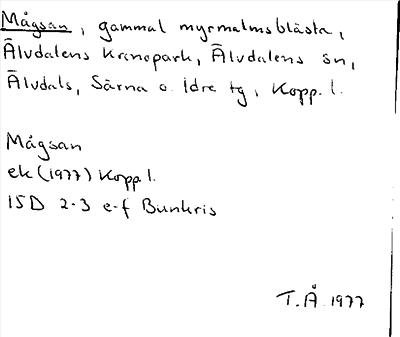 Mågsan, gammal myrmalmsblästa,
Älvdalens Kronopark, Älvdalens sn,
Älvdals, Särna o. Idre tg, Kopp. l.
Mågsan
ek (1977) Kopp l.
15D 2-3 e-f Bunkris
T.Å 1977